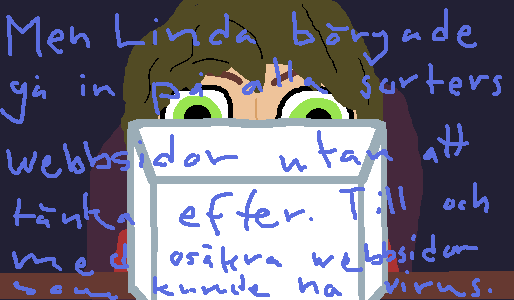 Men Linda började
gå in på alla sorters
webbsidor utan att
tänka efter. Till och
med osäkra webbsidor
som kunde ha virus.